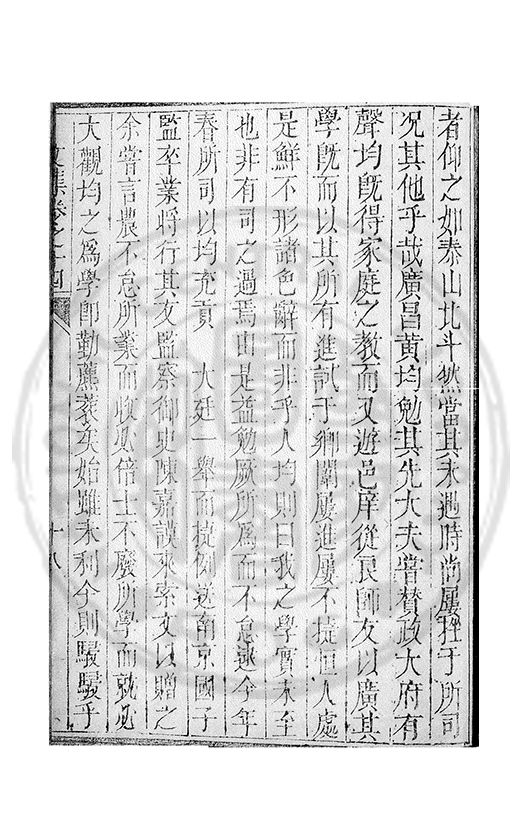 者仰之如泰山北斗然當其未遇時尚屢挫于所司
况其他乎哉廣昌黄均勉其先大夫甞賛政大府有
聲均既得家庭之教而又遊邑庠從良師友以廣其
學既而以其所有進試于鄉闈屢進屢不捷恒人處
是鮮不形諸色辭而非乎人均則曰我之學實未至
也非有司之過焉由是益勉厥所爲而不怠逮今年
春所司以均充貢　大廷一舉而捷例送南京國子
監卒業將行其友監察御史陳嘉謨來索文以贈之
余甞言農不怠所業而收必倍士不廢所學而就必
大觀均之爲學卽勤藨蓘矣始雖未利今則駸駸乎
文集卷之十四
十八